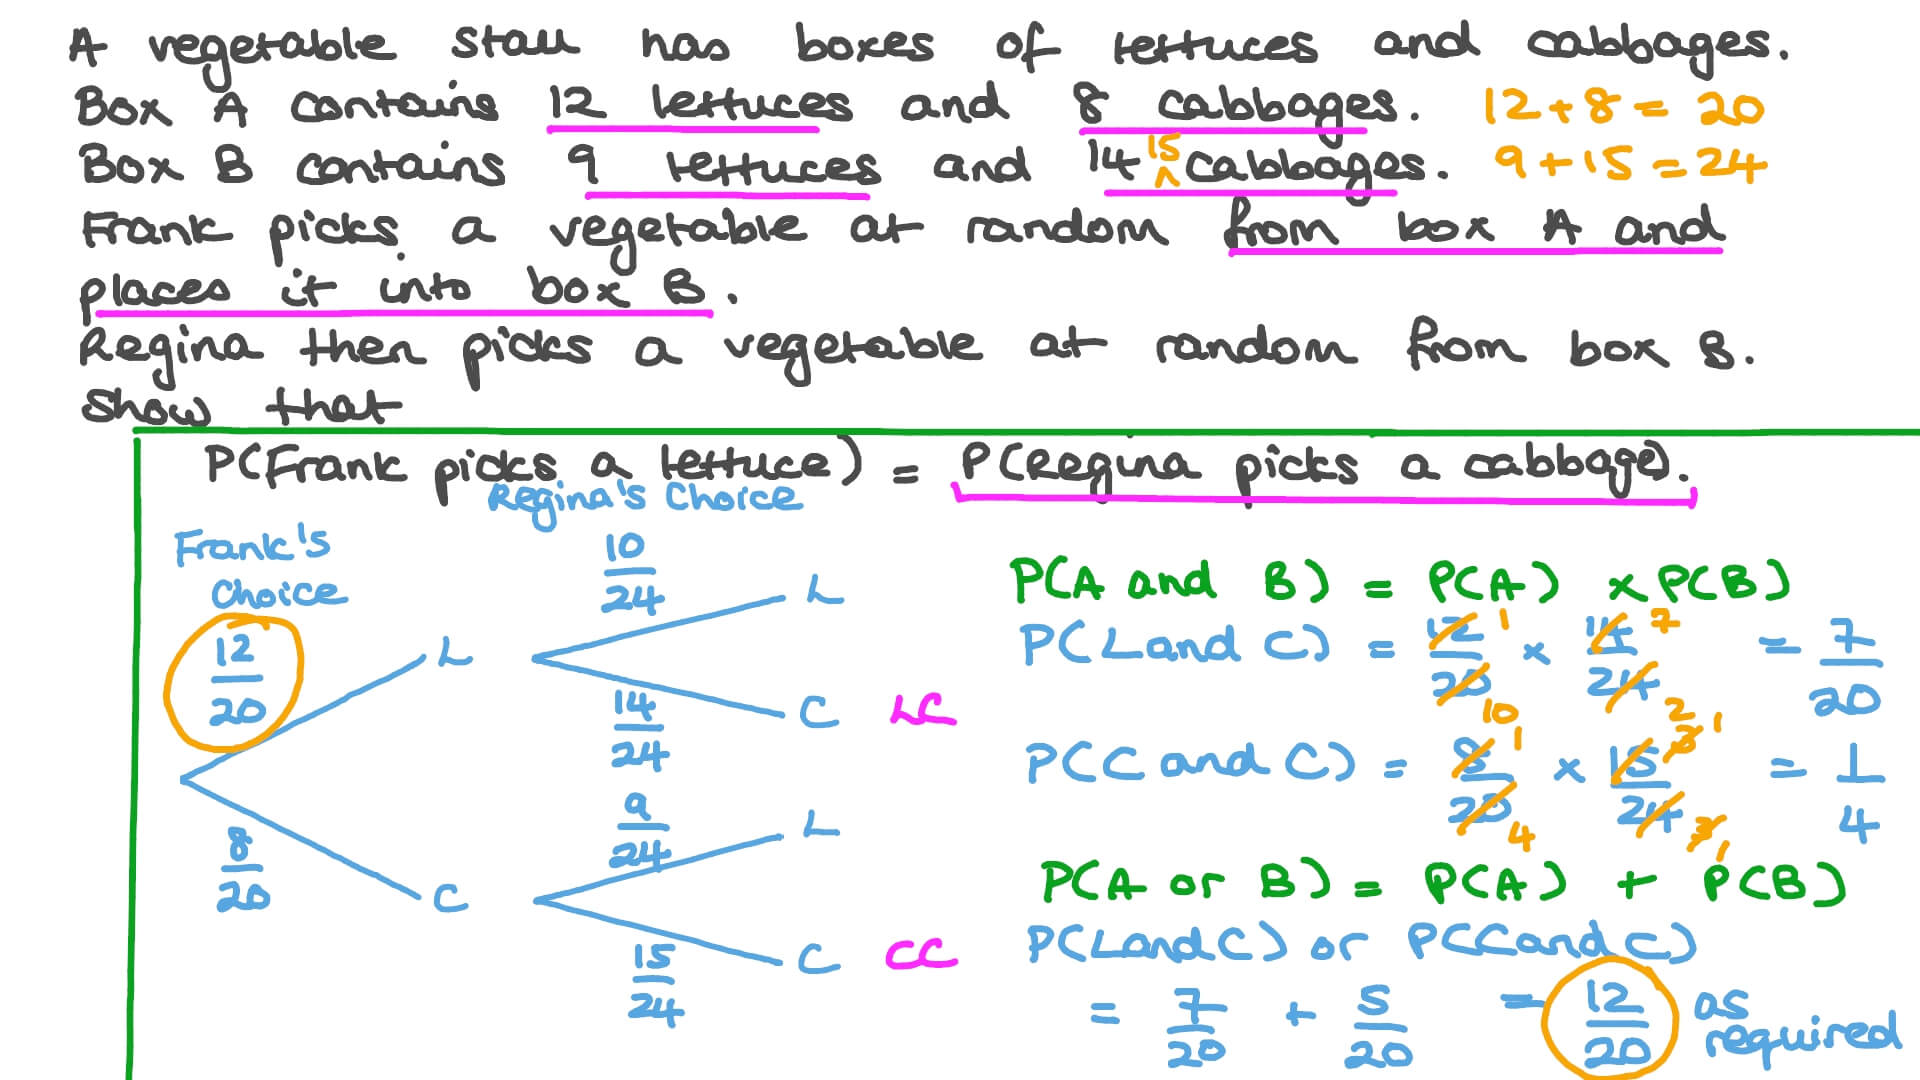 A vegetable stall has boxes of lettuces and cabbages.
Box A contains 12 lettuces and 8 cabbages. 12 + 8 = 20
Box B contains 9 lettuces and 14 15 cabbages. 9 + 15 = 24
Frank picks a vegetable at random from box A and
places it into box B.
Regina then picks a vegetable at random from box B.
Show that
P(Frank picks a lettuce) = P(Regina picks a cabbage).
Regina's Choice
Frank's
Choice
12/20
L
8/20
C
10/24
L
14/24
C LC
9/24
L
15/24
C CC
P(A and B) = P(A) x P(B)
P(L and C) = 12/20 x 14/24 = 7/20
1 7
10 2
P(C and C) = 8/20 x 15/24 = 1/4
1 3 1
4 3 1
P(A or B) = P(A) + P(B)
P(L and C) or P(C and C)
= 7/20 + 5/20 = 12/20 as
required